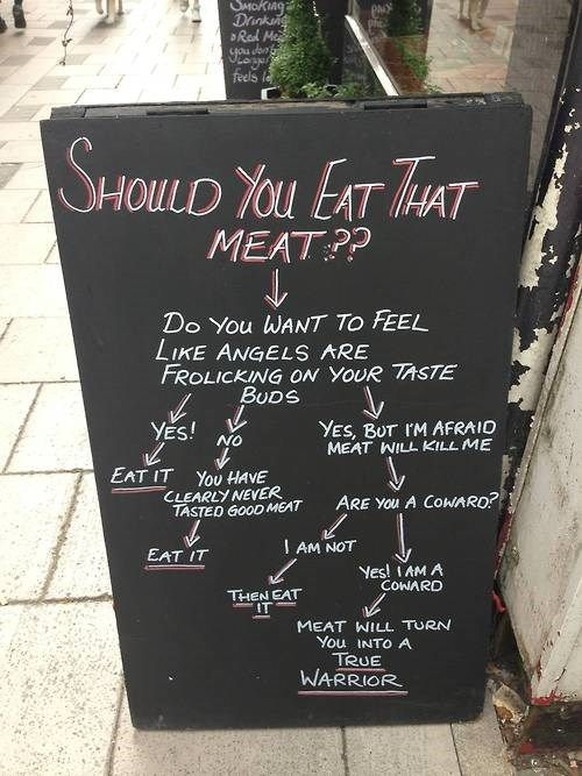 Smoking
Drinking
Red
you don't
Longer
feels
SHOULD YOU EAT THAT
MEAT??
DO YOU WANT TO FEEL
LIKE ANGELS ARE
FROLICKING ON YOUR TASTE
BUDS
YES!
NO
YES, BUT I'M AFRAID
MEAT WILL KILL ME
EAT IT
YOU HAVE
CLEARLY NEVER
TASTED GOOD MEAT
ARE YOU A COWARD?
EAT IT
I AM NOT
YES! I AM A
COWARD
THEN EAT
IT
MEAT WILL TURN
YOU INTO A
TRUE
WARRIOR